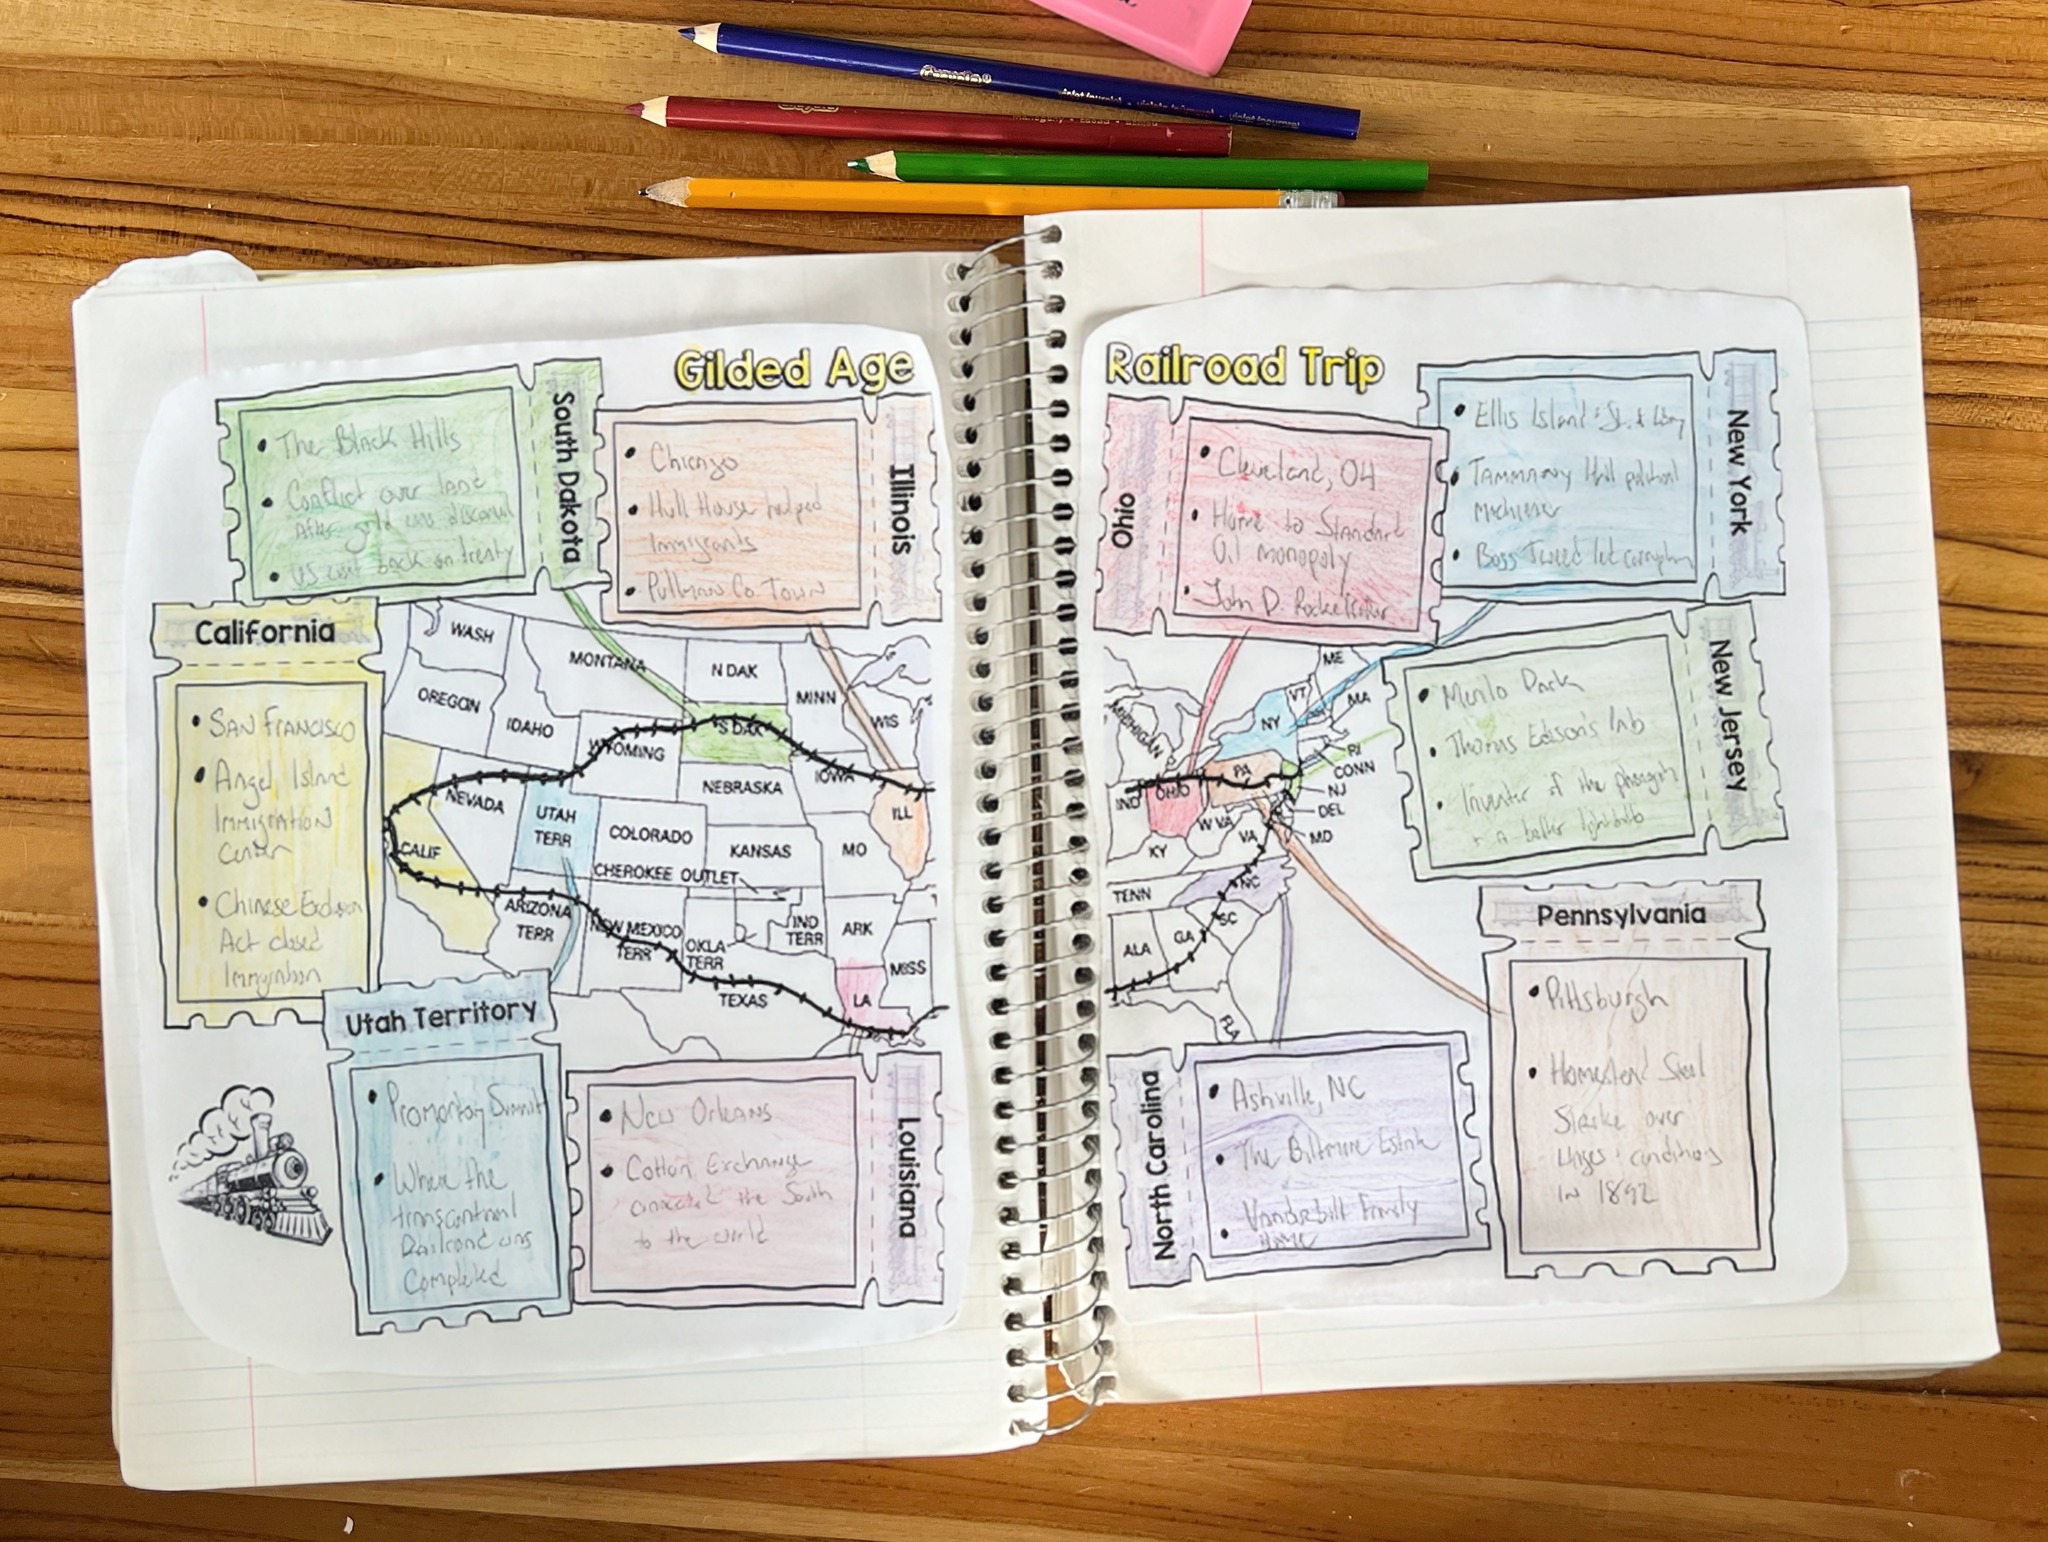 Gilded Age
Railroad Trip
South Dakota
• The Black Hills
• Conflict over land
After gold was discovered
• US went back on treaty
Illinois
• Chicago
• Hull House helped
Immigrants
• Pullman Co. Town
Ohio
• Cleveland, OH
• Home to Standard
Oil monopoly
• John D. Rockefeller
New York
• Ellis Island
• Tammany Hall political
• Boss Tweed led corruption
California
• San Francisco
• Angel Island
Immigration
Center
• Chinese Exclusion
Act closed
Immigration
New Jersey
• Menlo Park
• Thomas Edison's lab
• Inventor of the
+ a better lightbulb
Pennsylvania
• Pittsburgh
• Homestead Steel
Strike over
wages + conditions
in 1892
Utah Territory
• Promontory Summit
• Where the
Railroad was
Completed
Louisiana
• New Orleans
• Cotton Exchange
connected the South
to the world
North Carolina
• Ashville, NC
• The Biltmore Estate
• Vanderbilt Family
Home
WASH
MONTANA
N DAK
MINN
OREGON
IDAHO
WYOMING
S DAK
WIS
NEVADA
UTAH
TERR
NEBRASKA
IOWA
ILL
CALIF
COLORADO
KANSAS
MO
CHEROKEE OUTLET
ARIZONA
TERR
NEW MEXICO
TERR
OKLA
TERR
IND
TERR
ARK
MISS
TEXAS
LA
MICHIGAN
ME
VT
MA
NY
RI
CONN
PA
NJ
IND
OHIO
DEL
W VA
VA
MD
KY
TENN
NC
SC
ALA
GA
FLA